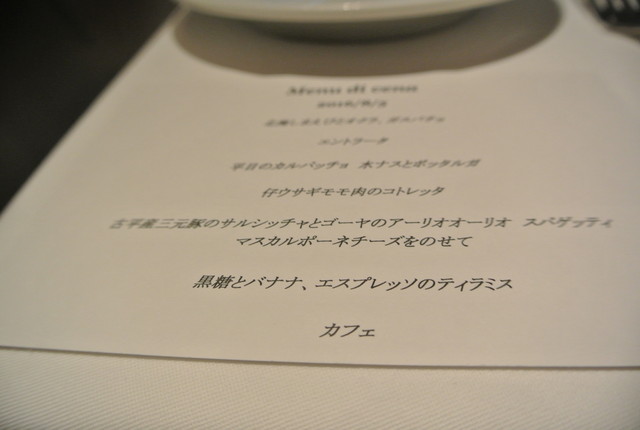 Menu di cena
エントラータ
平目のカルパッチョ 水ナスとボッタルガ
仔ウサギモモ肉のコトレッタ
古平産三元豚のサルシッチャとゴーヤのアーリオオーリオ スパゲッティ
マスカルポーネチーズをのせて
黒糖とバナナ、エスプレッソのティラミス
カフェ